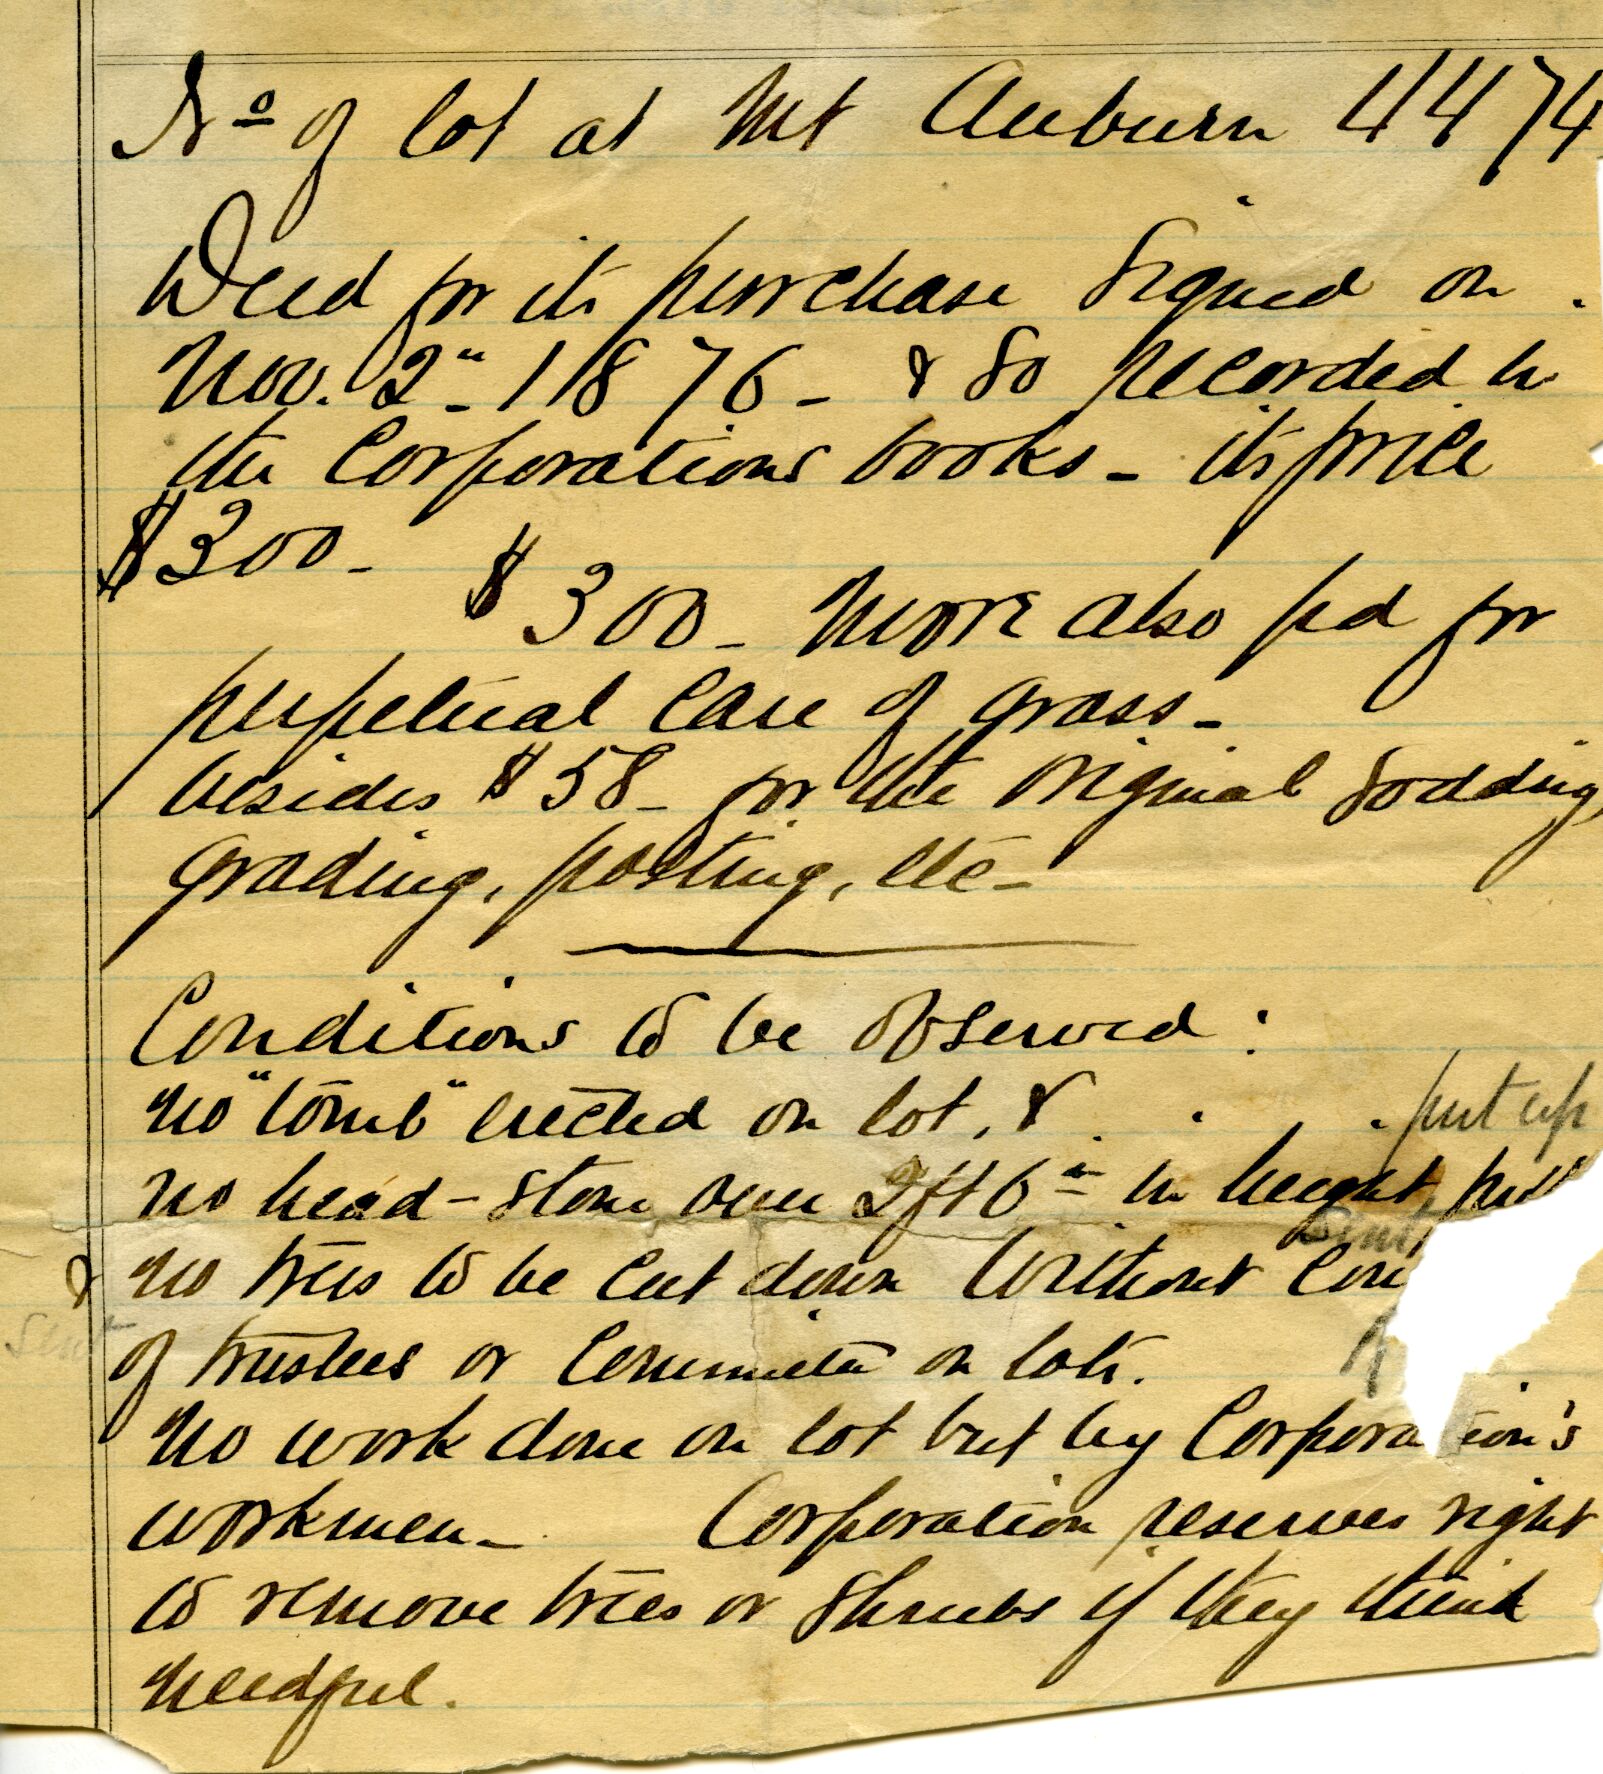 No of lot at Mt Auburn 4474
Deed for its purchase signed on
Nov. 2" 1876 - & so recorded in
the Corporations books - its price
$300 -
$300 - more also pd for
perpetual care of grass -
besides $58 - for the original sodding,
grading, posting, etc -
Conditions to be observed:
no "tomb" erected on lot, &
put up
no head-stone over 2 ft 6 in in height
& no trees to be cut down without con
of trustees or Committee on lots.
No work done on lot but by Corporation's
workmen - Corporation reserves right
to remove trees or shrubs if they think
needful.